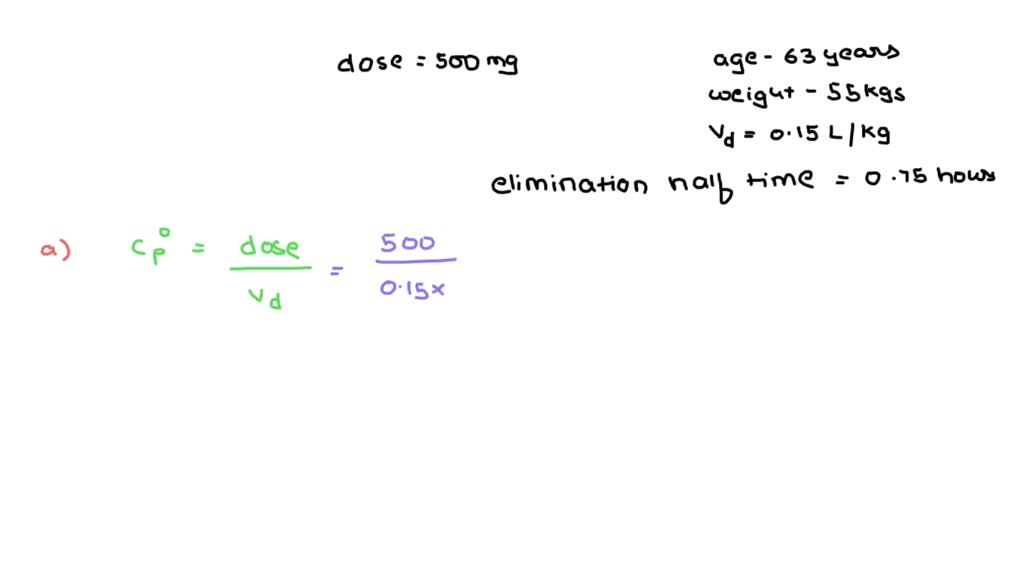 dose = 500 mg
age - 63 years
weight - 55 kgs
Vd = 0.15 L/kg
elimination half time = 0.75 hours
a) Cp° = dose / Vd = 500 / 0.15 x